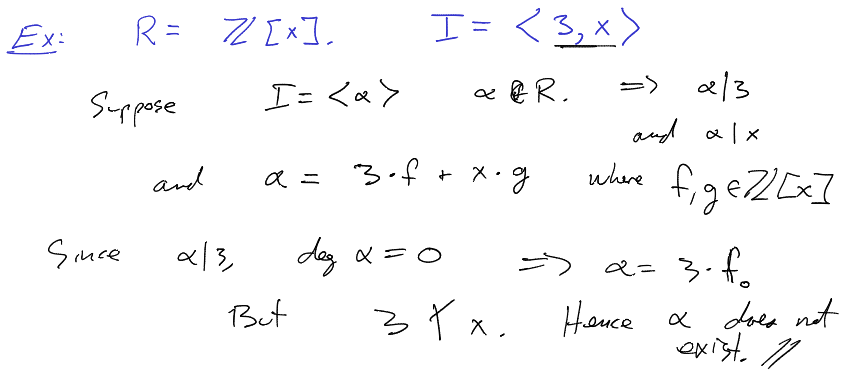 Ex: R = ℤ[x]. I = <3, x>
Suppose I = <α> α ∈ R. => α|3
and α|x
and α = 3·f + x·g where f, g ∈ ℤ[x]
Since α|3, deg α = 0 => α = 3·f₀
But 3 ∤ x. Hence α does not
exist. //